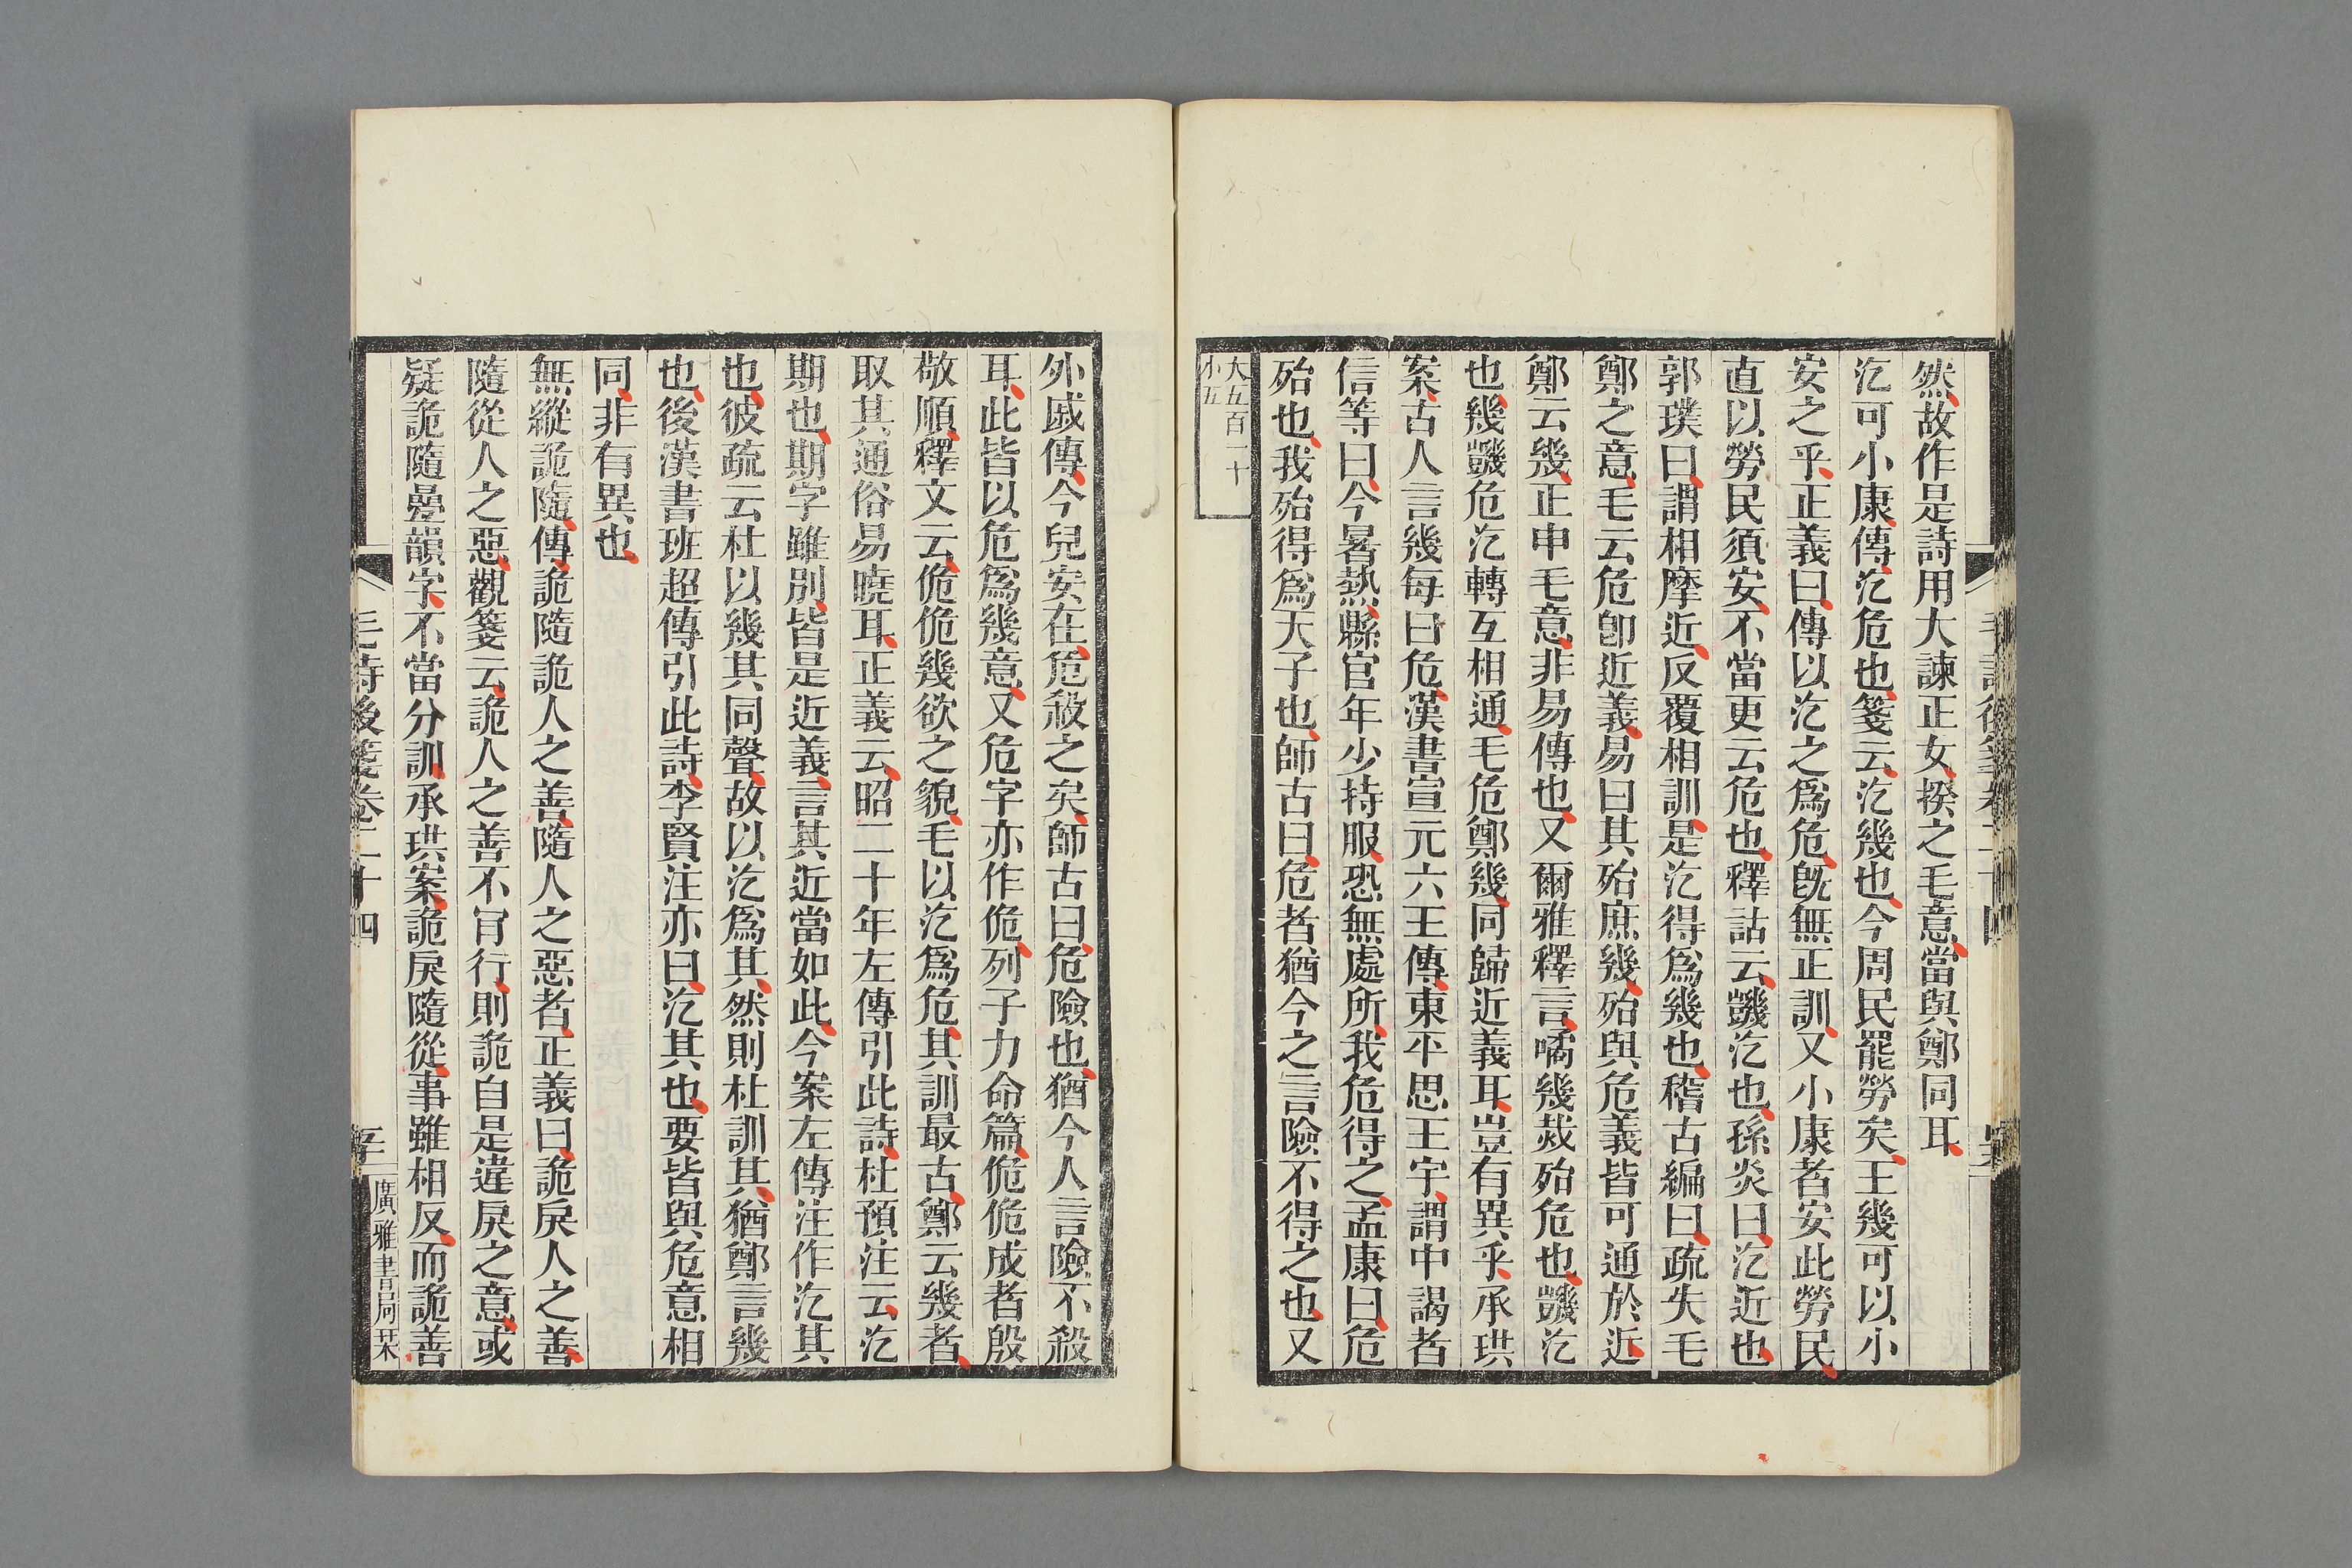 然故作是詩用大諫正女揆之毛意當與鄭同耳
汔可小康傳汔危也箋云汔幾也今周民罷勞矣王幾可以小
安之乎正義曰傳以汔之爲危旣無正訓又小康者安此勞民
直以勞民須安不當更云危也釋詁云譏汔也孫炎曰汔近也
郭璞曰謂相摩近反覆相訓是汔得爲幾也稽古編曰疏失毛
鄭之意毛云危卽近義易曰其殆庶幾殆與危義皆可通於近
鄭云幾正申毛意非易傳也又爾雅釋言噊幾烖殆危也譏汔
也幾譏危汔轉互相通毛危鄭幾同歸近義耳豈有異乎承珙
案古人言幾每曰危漢書宣元六王傳東平思王宇謂中謁者
信等曰今暑熱縣官年少持服恐無處所我危得之孟康曰危
殆也我殆得爲天子也師古曰危者猶今之言險不得之也又
大五百一十
小五
外戚傳今兒安在危殺之矣師古曰危險也猶今人言險不殺
耳此皆以危爲幾意又危字亦作佹列子力命篇佹佹成者殷
敬順釋文云佹佹幾欲之貌毛以汔爲危其訓最古鄭云幾者
取其通俗易曉耳正義云昭二十年左傳引此詩杜預注云汔
期也期字雖別皆是近義言其近當如此今案左傳注作汔其
也彼疏云杜以幾其同聲故以汔爲其然則杜訓其猶鄭言幾
也後漢書班超傳引此詩李賢注亦曰汔其也要皆與危意相
同非有異也
無縱詭隨傳詭隨詭人之善隨人之惡者正義曰詭戾人之善
隨從人之惡觀箋云詭人之善不肯行則詭自是違戾之意或
疑詭隨疊韻字不當分訓承珙案詭戾隨從事雖相反而詭善
毛詩後箋卷二十四
廣雅書局栞